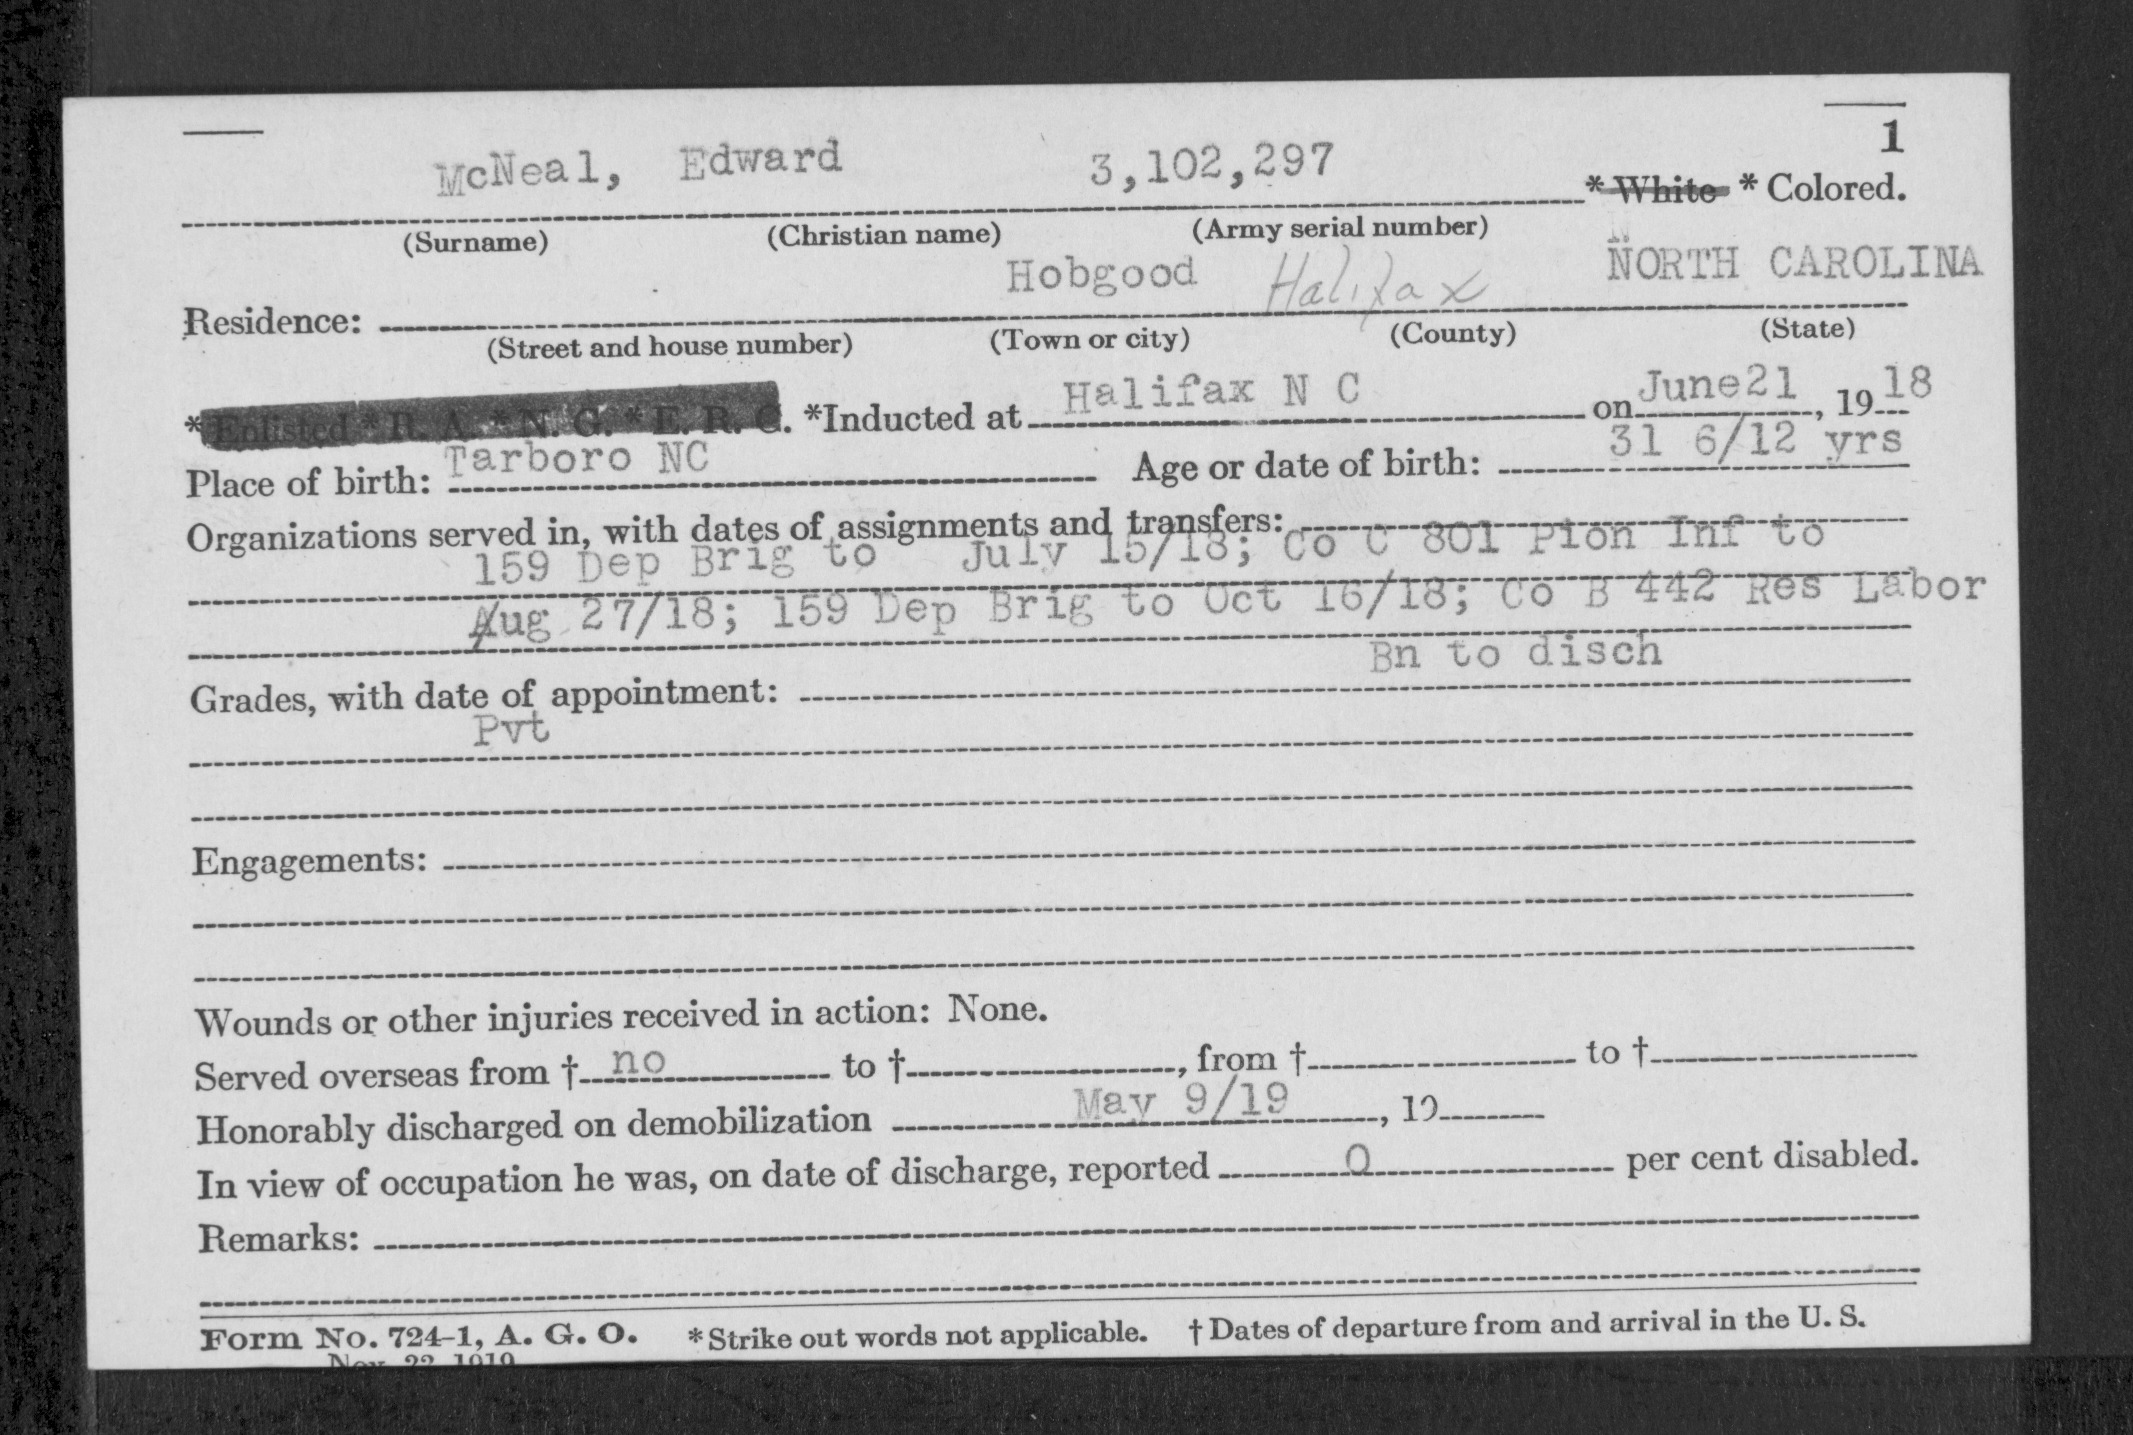 1
McNeal, Edward 3,102,297 * White * Colored.
(Surname) (Christian name) (Army serial number)
Hobgood Halifax NORTH CAROLINA
Residence:
(Street and house number) (Town or city) (County) (State)
*Enlisted * R. A. * N. G. * E. R. C. *Inducted at Halifax N C on June21, 1918
Place of birth: Tarboro NC Age or date of birth: 31 6/12 yrs
Organizations served in, with dates of assignments and transfers:
159 Dep Brig to July 15/18; Co C 801 Pion Inf to
Aug 27/18; 159 Dep Brig to Oct 16/18; Co B 442 Res Labor
Bn to disch
Grades, with date of appointment:
Pvt
Engagements:
Wounds or other injuries received in action: None.
Served overseas from † no to †, from † to †
Honorably discharged on demobilization May 9/19, 19
In view of occupation he was, on date of discharge, reported 0 per cent disabled.
Remarks:
Form No. 724-1, A. G. O. *Strike out words not applicable. † Dates of departure from and arrival in the U. S.
Nov. 22, 1919